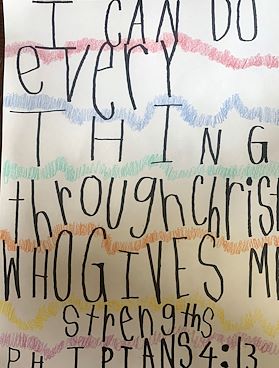 I CAN DO
every
THING
through christ
WHO GIVES M
strengths
PHIPIANS 4:13